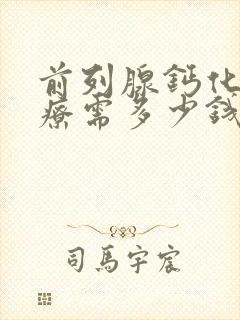 前列腺鈣化
療需多少錢
司馬宇宸